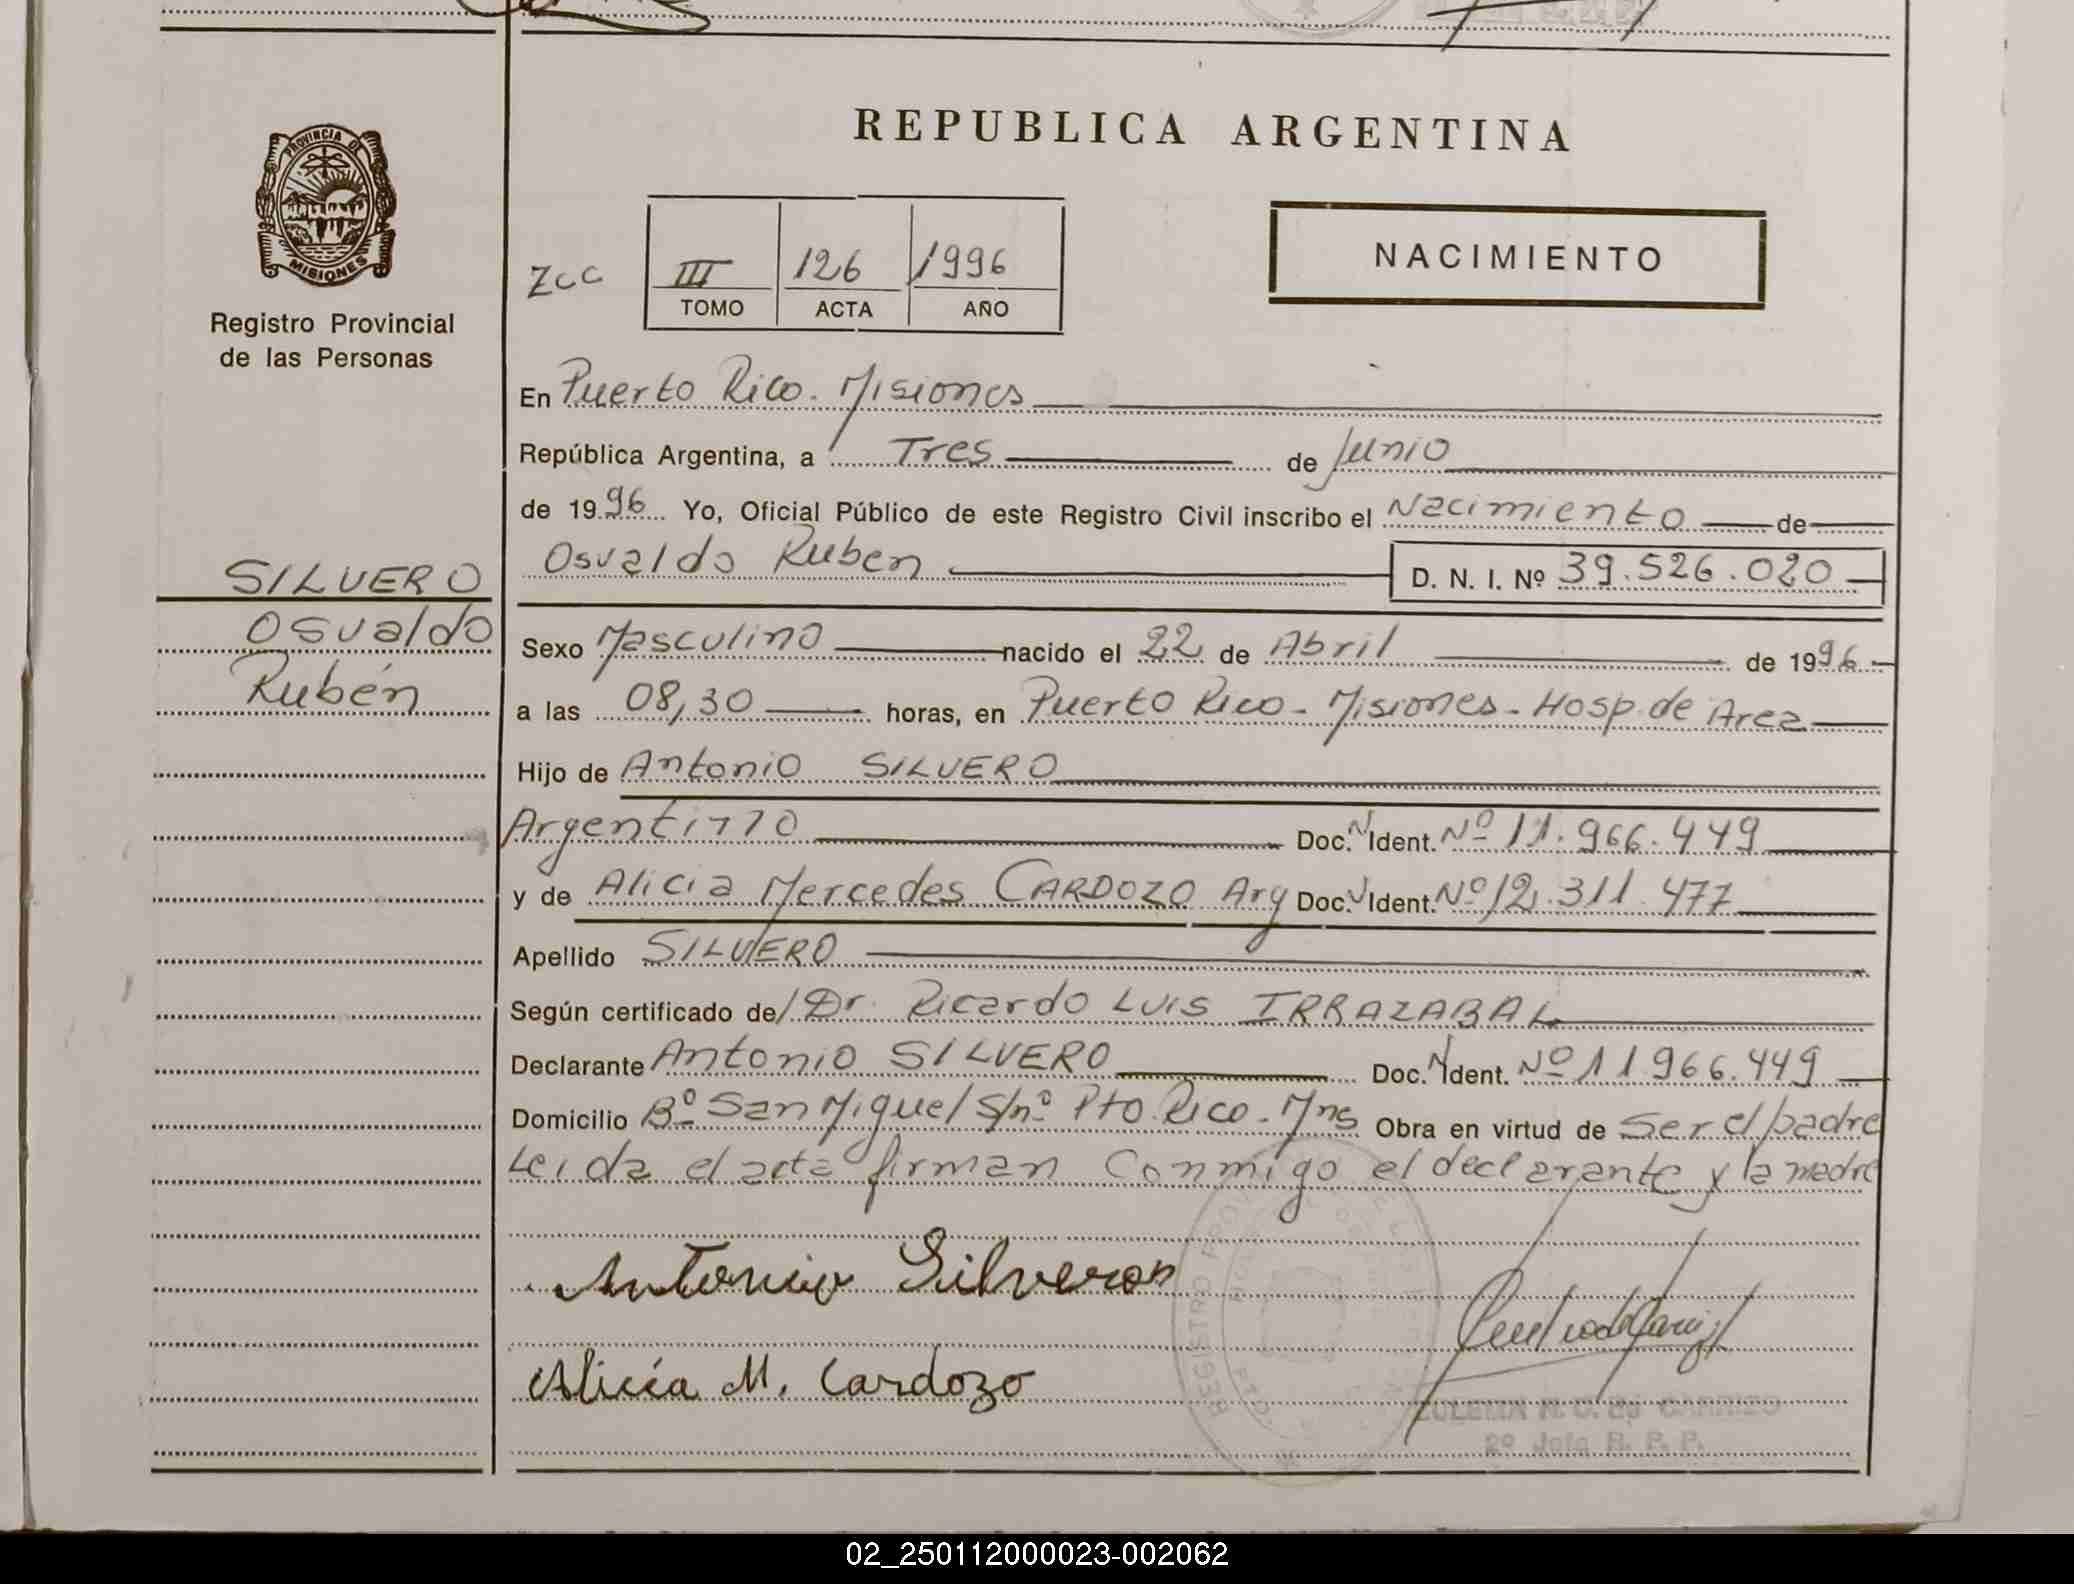 REPUBLICA ARGENTINA
PROVINCIA DE
MISIONES
Registro Provincial
de las Personas
Zcc
III 126 1996
TOMO ACTA AÑO
NACIMIENTO
En Puerto Rico. Misiones
República Argentina, a Tres de Junio
de 1996 Yo, Oficial Público de este Registro Civil inscribo el Nacimiento de
Osvaldo Ruben D. N. I. Nº 39.526.020
SILVERO
Osvaldo
Rubén
Sexo Masculino nacido el 22 de Abril de 1996
a las 08,30 horas, en Puerto Rico - Misiones - Hosp. de Area
Hijo de Antonio SILVERO
Argentino Doc. N Ident. Nº 11.966.449
y de Alicia Mercedes CARDOZO Arg Doc. N Ident. Nº 12.311.477
Apellido SILVERO
Según certificado de/ Dr. Ricardo Luis IRRAZABAL
Declarante Antonio SILVERO Doc. N Ident. Nº 11966.449
Domicilio Bº San Miguel S/nº Pto. Rico - Mns Obra en virtud de Ser el padre
Leida el acta firman Conmigo el declarante y la madre
Antonio Silvero
Alicia M. Cardozo
REGISTRO PROV
ZULEMA N. C. de CARRIZO
2º Jefe R. P. P.
02_250112000023-002062